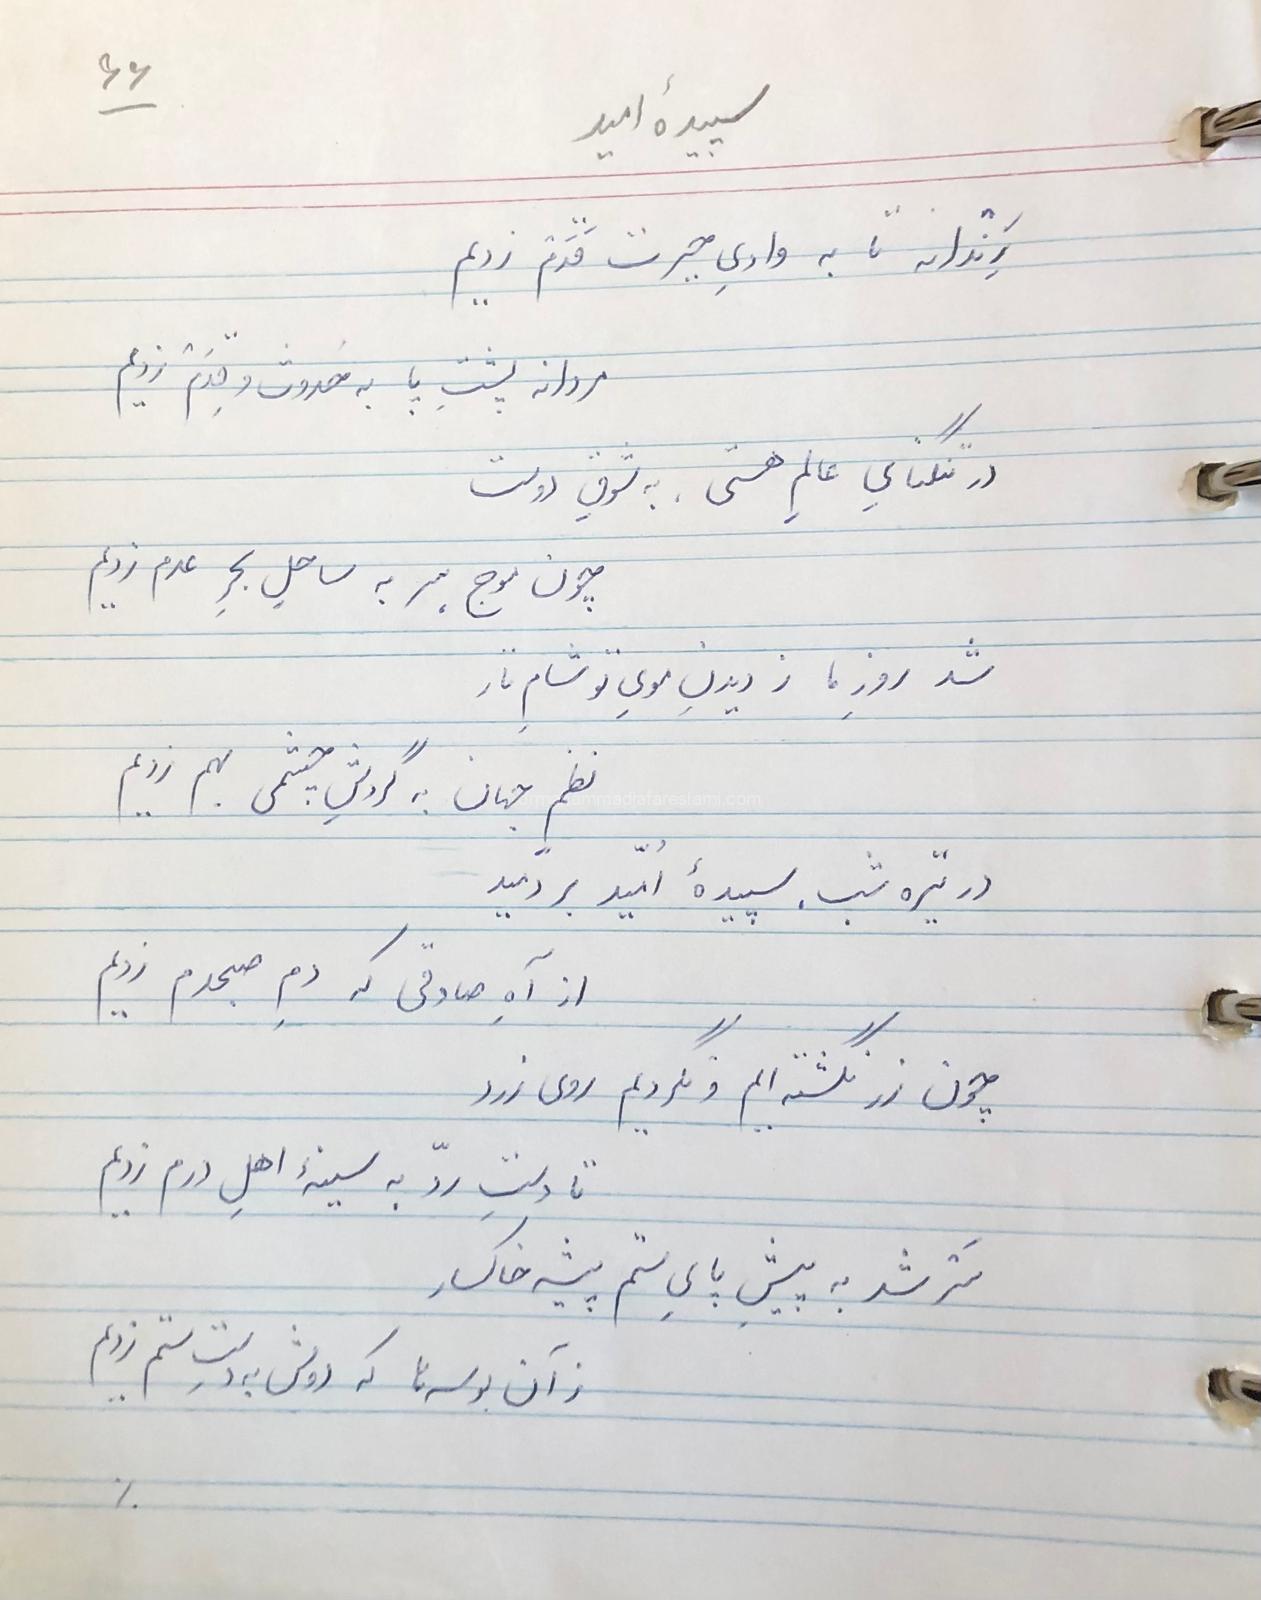 ۶۶
سپیدهٔ امید
رِندانه تا به وادیِ حیرت قَدَم زدیم
مردانه پشتِ پا به حُدوث و قِدَم زدیم
در تنگنایِ عالمِ هستی، به شوقِ دوست
چون موج سر به ساحلِ بحرِ عدم زدیم
شد روزِ ما ز دیدنِ مویِ تو شامِ تار
نظمِ جهان به گردشِ چشمی بهم زدیم
در تیره شب، سپیدهٔ اُمّید بردمید
از آهِ صادقی که دمِ صبحدم زدیم
چون زر نگشته‌ایم و نکردیم روی زرد
تا دستِ ردّ به سینهٔ اهلِ درم زدیم
شد به پیشِ پایِ ستم پیشه خاکسار
ز آن بوسه‌ها که دوش به دستِ ستم زدیم
٪
mohammadjafareslami.com